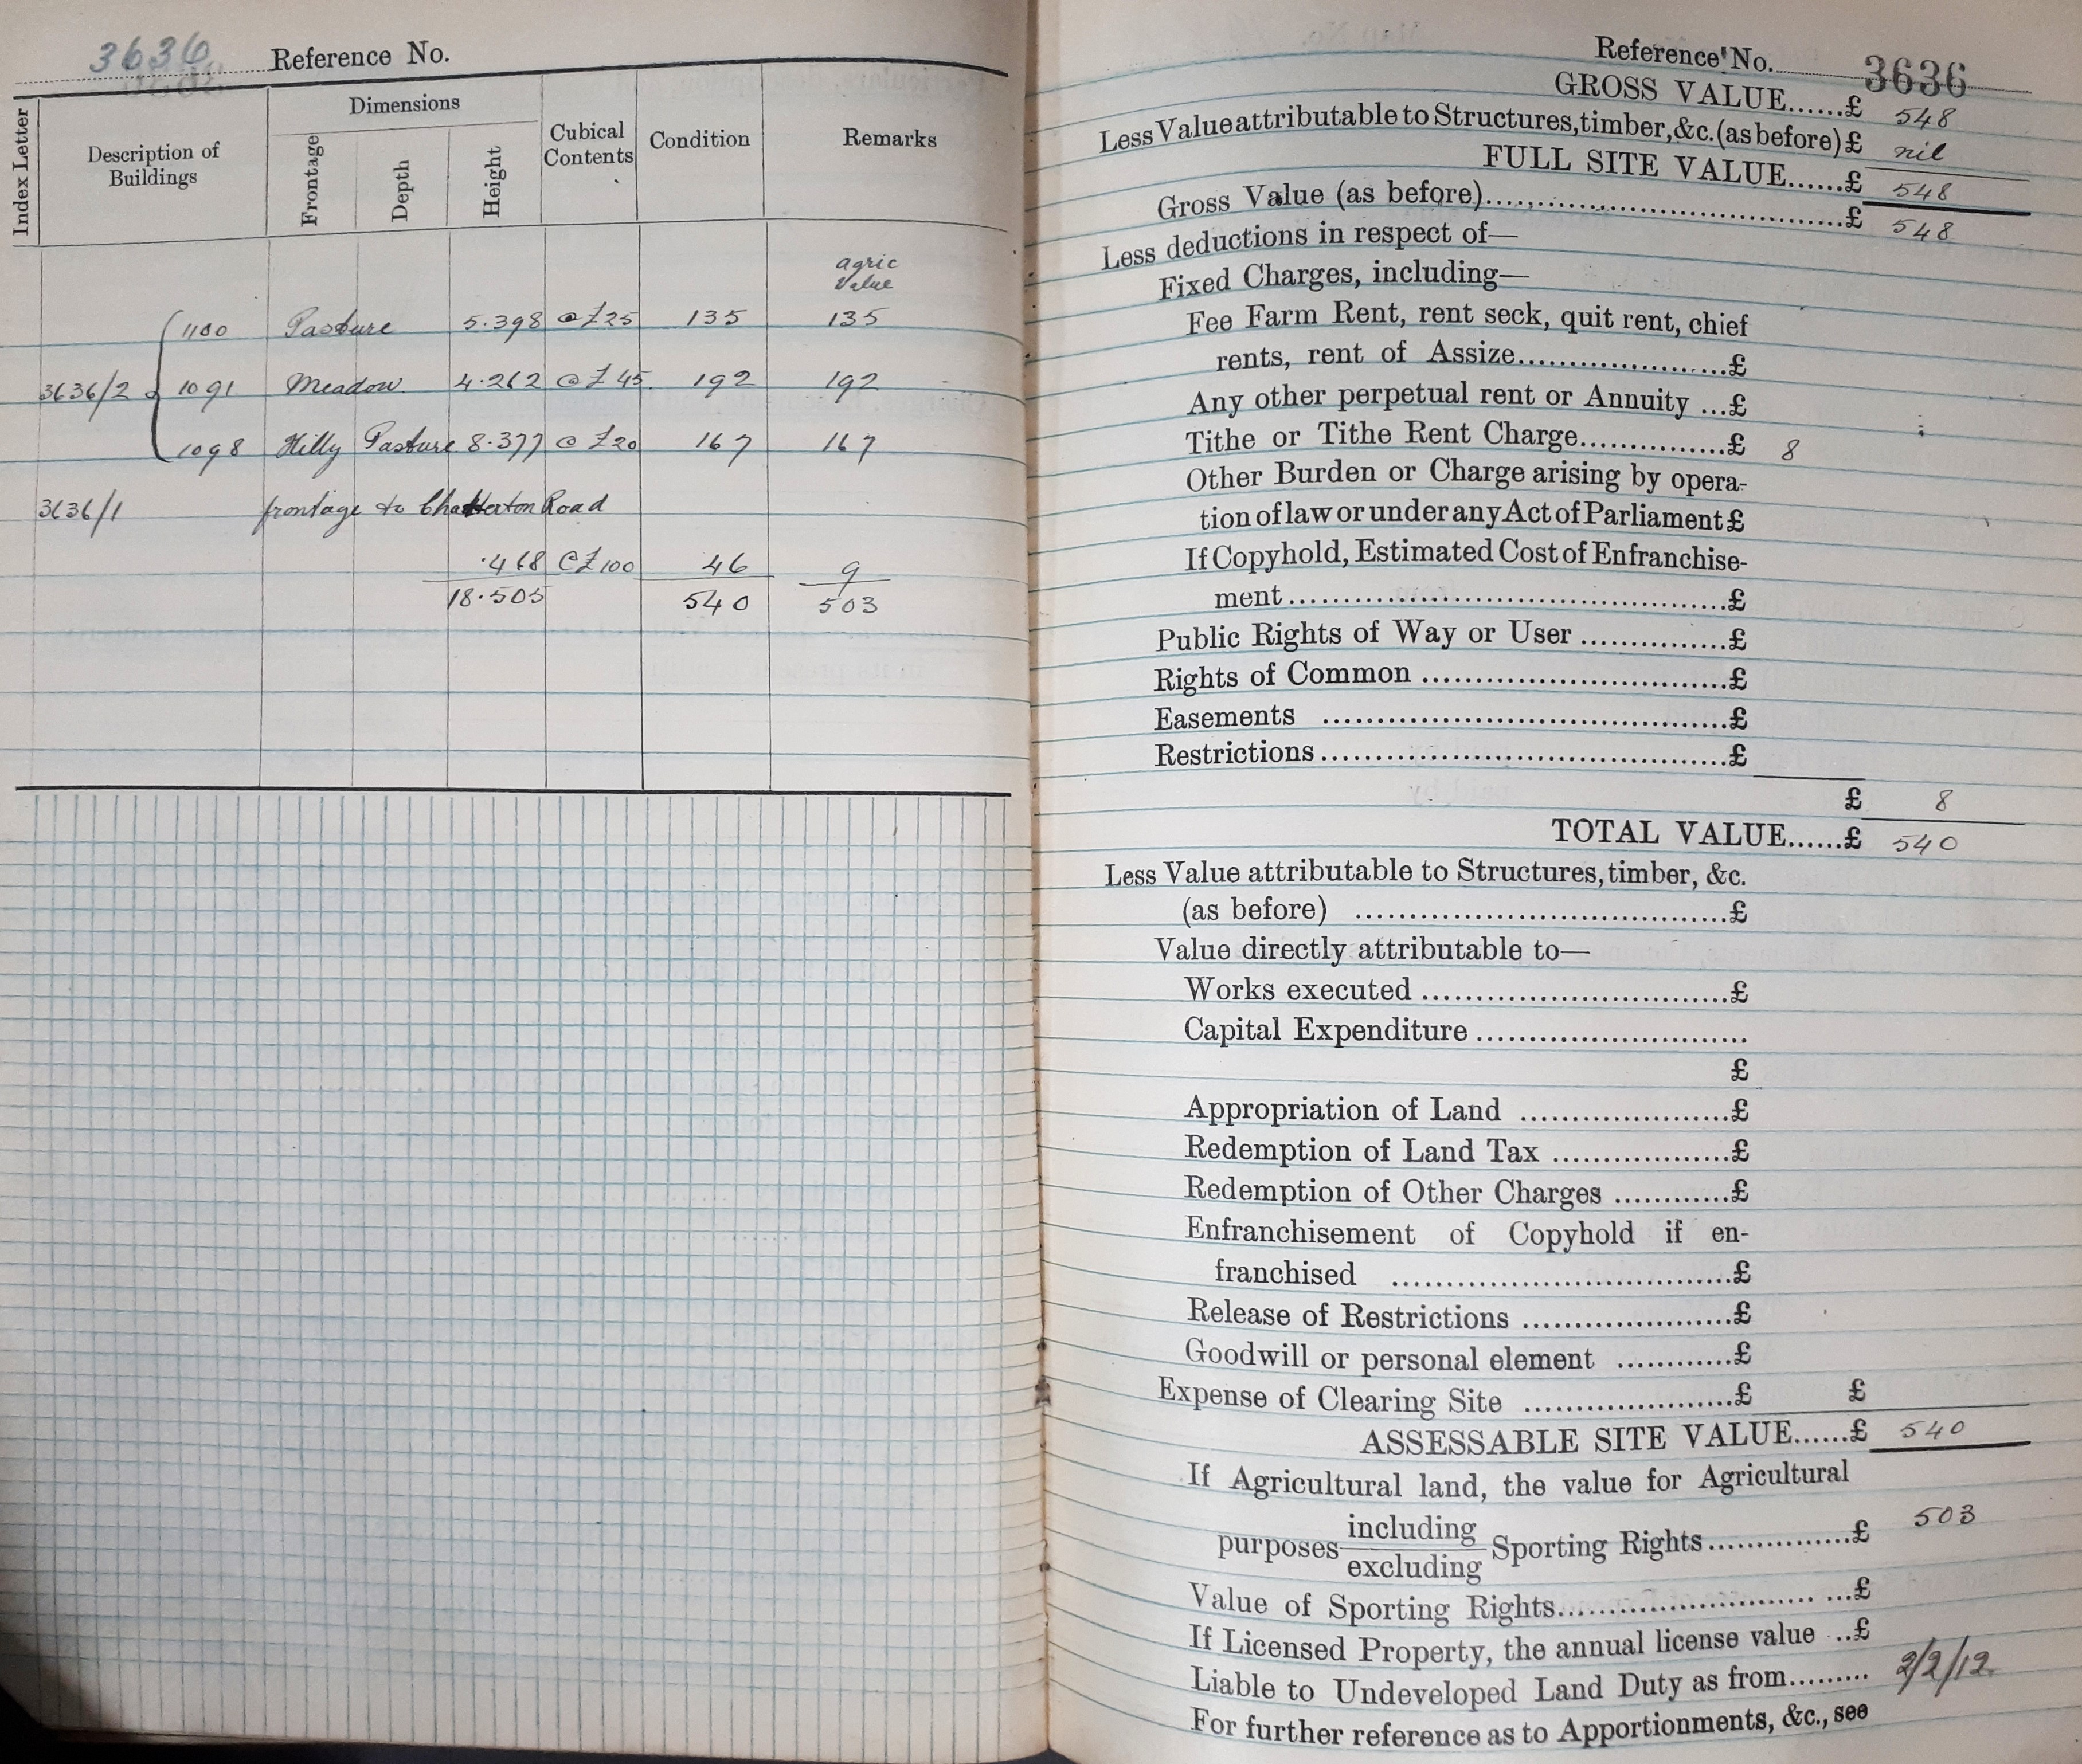 3636 Reference No.
Index Letter
Description of
Buildings
Dimensions
Frontage
Depth
Height
Cubical
Contents
Condition
Remarks
agric
value
1100 Pasture 5.398 @ £25 135 135
3636/2 1091 Meadow 4.262 @ £45 192 192
1098 Hilly Pasture 8.377 @ £20 167 167
3636/1 frontage to Chatterton Road
.468 @ £100 46 9
18.505 540 503
Reference No. 3636
GROSS VALUE......£ 548
Less Value attributable to Structures, timber, &c. (as before) £ nil
FULL SITE VALUE......£ 548
Gross Value (as before)......£ 548
Less deductions in respect of—
Fixed Charges, including—
Fee Farm Rent, rent seck, quit rent, chief
rents, rent of Assize......£
Any other perpetual rent or Annuity ...£
Tithe or Tithe Rent Charge......£ 8
Other Burden or Charge arising by opera-
tion of law or under any Act of Parliament £
If Copyhold, Estimated Cost of Enfranchise-
ment......£
Public Rights of Way or User......£
Rights of Common......£
Easements......£
Restrictions......£
£ 8
TOTAL VALUE......£ 540
Less Value attributable to Structures, timber, &c.
(as before)......£
Value directly attributable to—
Works executed......£
Capital Expenditure......
£
Appropriation of Land......£
Redemption of Land Tax......£
Redemption of Other Charges......£
Enfranchisement of Copyhold if en-
franchised......£
Release of Restrictions......£
Goodwill or personal element......£
Expense of Clearing Site......£ £
ASSESSABLE SITE VALUE......£ 540
If Agricultural land, the value for Agricultural
purposes including
excluding Sporting Rights......£ 503
Value of Sporting Rights......£
If Licensed Property, the annual license value ..£
Liable to Undeveloped Land Duty as from......... 2/2/12.
For further reference as to Apportionments, &c., see